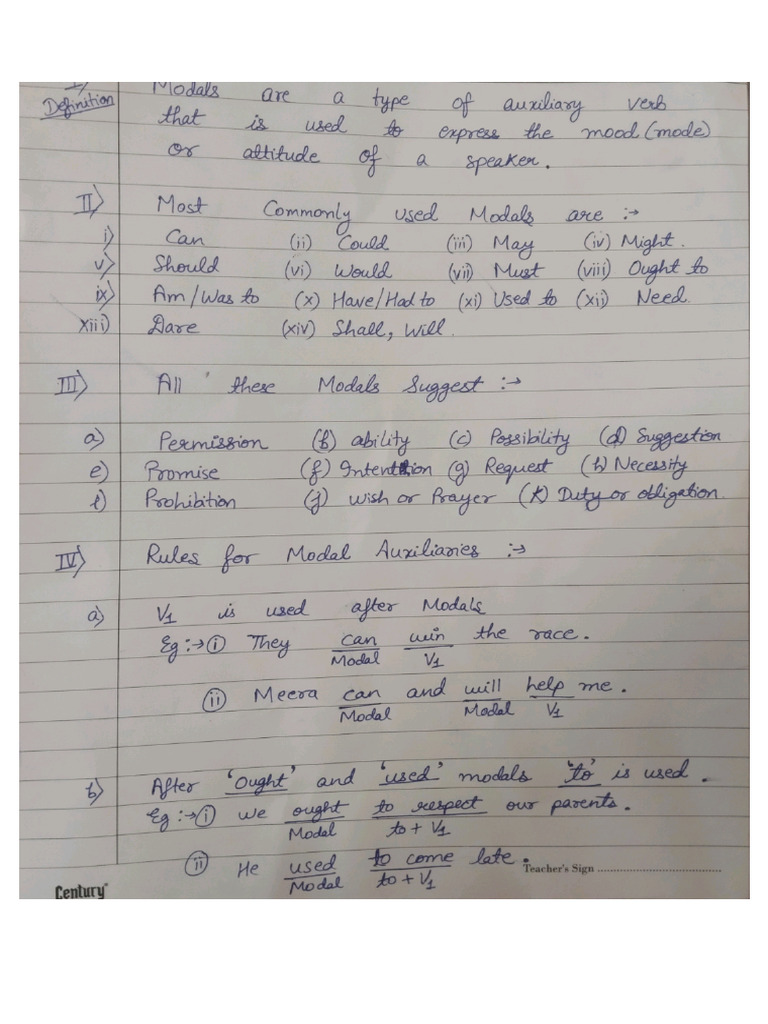 I)
Definition
Modals are a type of auxiliary verb
that is used to express the mood (mode)
or attitude of a speaker.
II) Most Commonly used Modals are :→
i) Can (ii) Could (iii) May (iv) Might.
v) Should (vi) Would (vii) Must (viii) Ought to
ix) Am/Was to (x) Have/Had to (xi) Used to (xii) Need.
xiii) Dare (xiv) Shall, Will.
III) All these Modals Suggest :→
a) Permission (b) ability (c) Possibility (d) Suggestion
e) Promise (f) Intention (g) Request (h) Necessity
i) Prohibition (j) wish or Prayer (k) Duty or obligation.
IV) Rules for Modal Auxiliaries :→
a) V1 is used after Modals
Eg :→ (i) They can win the race.
Modal V1
(ii) Meera can and will help me.
Modal Modal V1
b) After 'Ought' and 'used' modals 'to' is used.
Eg :→ (i) We ought to respect our parents.
Modal to + V1
(ii) He used to come late.
Modal to + V1
Teacher's Sign ........................................
Century